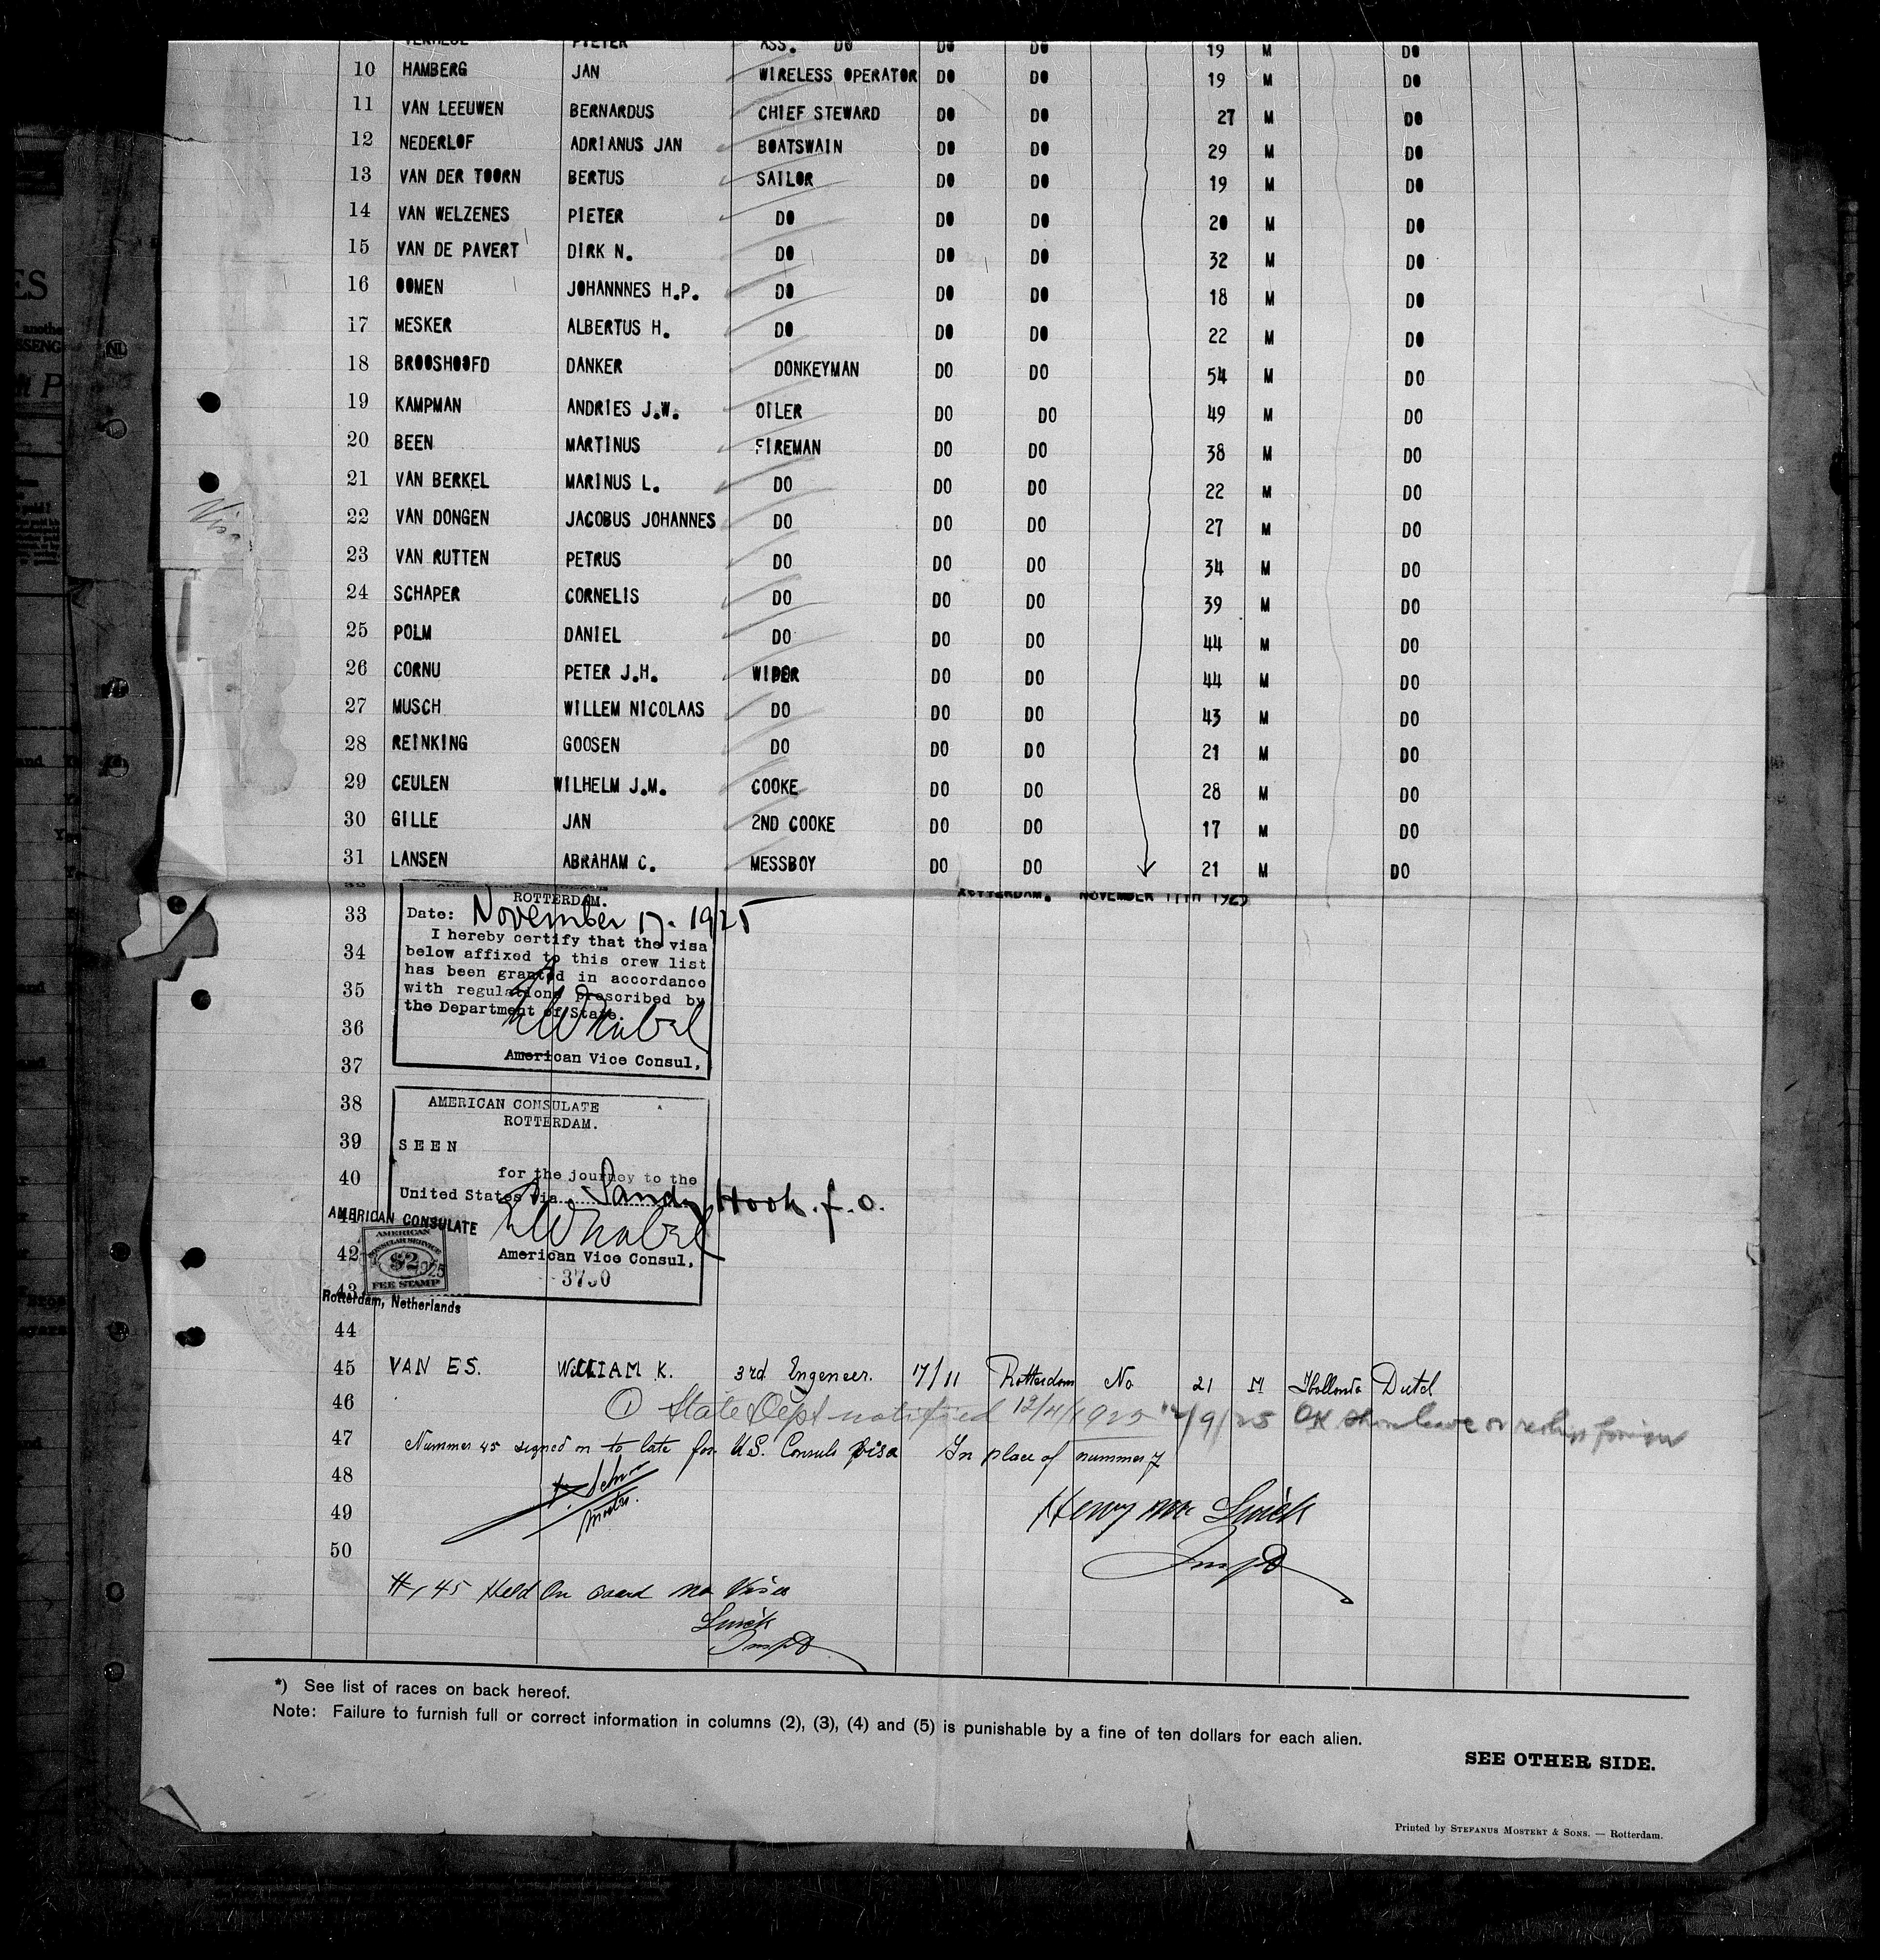 PIETER ASS. DO DO DO 19 M DO
10 HAMBERG JAN WIRELESS OPERATOR DO DO 19 M DO
11 VAN LEEUWEN BERNARDUS CHIEF STEWARD DO DO 27 M DO
12 NEDERLOF ADRIANUS JAN BOATSWAIN DO DO 29 M DO
13 VAN DER TOORN BERTUS SAILOR DO DO 19 M DO
14 VAN WELZENES PIETER DO DO DO 20 M DO
15 VAN DE PAVERT DIRK N. DO DO DO 32 M DO
16 OOMEN JOHANNNES H.P. DO DO DO 18 M DO
17 MESKER ALBERTUS H. DO DO DO 22 M DO
18 BROOSHOOFD DANKER DONKEYMAN DO DO 54 M DO
19 KAMPMAN ANDRIES J.W. OILER DO DO 49 M DO
20 BEEN MARTINUS FIREMAN DO DO 38 M DO
21 VAN BERKEL MARINUS L. DO DO DO 22 M DO
22 VAN DONGEN JACOBUS JOHANNES DO DO DO 27 M DO
23 VAN RUTTEN PETRUS DO DO DO 34 M DO
24 SCHAPER CORNELIS DO DO DO 39 M DO
25 POLM DANIEL DO DO DO 44 M DO
26 CORNU PETER J.H. WIPER DO DO 44 M DO
27 MUSCH WILLEM NICOLAAS DO DO DO 43 M DO
28 REINKING GOOSEN DO DO DO 21 M DO
29 CEULEN WILHELM J.M. COOKE DO DO 28 M DO
30 GILLE JAN 2ND COOKE DO DO 17 M DO
31 LANSEN ABRAHAM C. MESSBOY DO DO 21 M DO
ROTTERDAM. NOVEMBER 17TH 1925
ROTTERDAM.
33 Date: November 17. 1925
I hereby certify that the visa
34 below affixed to this crew list
has been granted in accordance
35 with regulations prescribed by
the Department of State.
36
37 American Vice Consul,
38 AMERICAN CONSULATE
ROTTERDAM.
39 SEEN
40 for the journey to the
United States via Sandy Hook. f. o.
AMERICAN CONSULATE
41
AMERICAN
CONSULAR SERVICE
42 American Vice Consul,
$2 1925
FEE STAMP
43
Rotterdam, Netherlands
44
45 VAN ES. WILLIAM K. 3rd Engeneer. 17/11 Rotterdam No 21 M Hollands Dutch
46 1 State Dept notified 12/4/1925 12/9/25 OK shore leave or reship foreign
47 Nummer 45 signed on to late for U.S. Consuls visa In place of nummer 7
48
Master.
49 Henry
50 Inspt
# 45 Held On Board no Visa
Inspt
*) See list of races on back hereof.
Note: Failure to furnish full or correct information in columns (2), (3), (4) and (5) is punishable by a fine of ten dollars for each alien.
SEE OTHER SIDE.
Printed by STEFANUS MOSTERT & SONS. — Rotterdam.